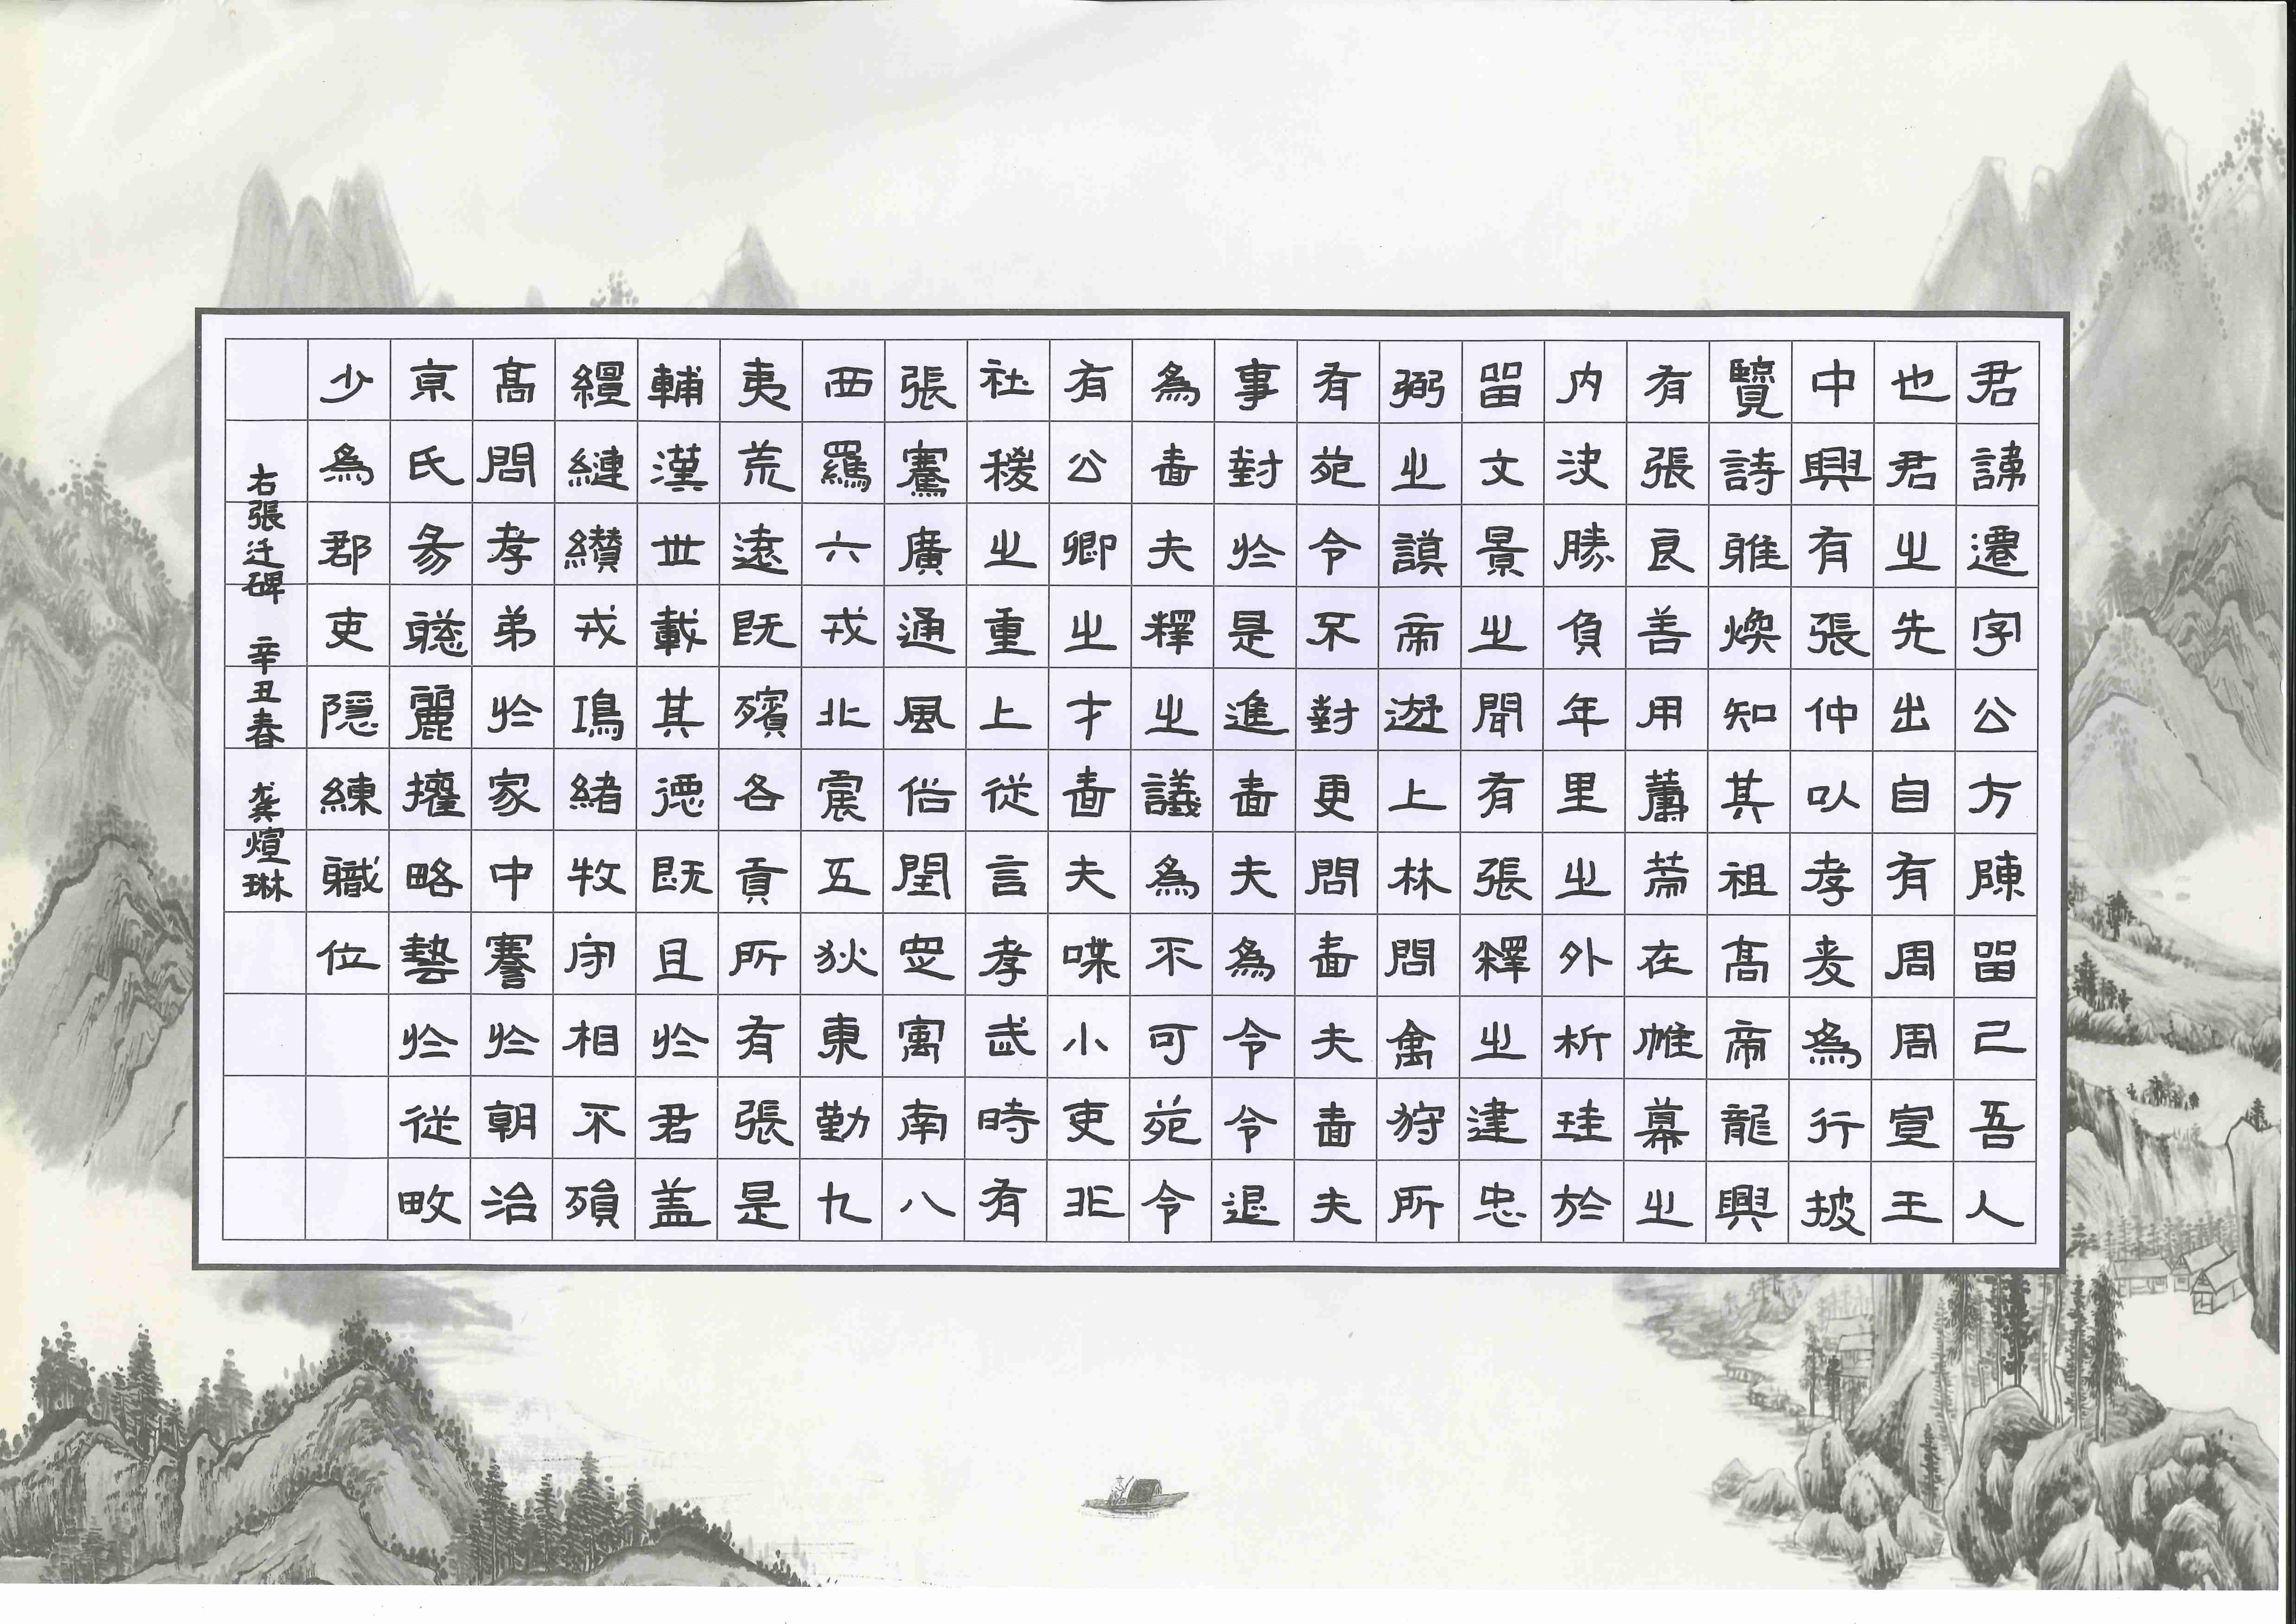 君諱遷字公方陳留己吾人
也君之先出自有周周宣王
中興有張仲以孝友為行披
覽詩雅煥知其祖高帝龍興
有張良善用蕭何在帷幕之
内決勝負年里之外析珪於
留文景之間有張釋之建忠
弼之謨帝遊上林問禽狩所
有苑令不對更問嗇夫嗇夫
事對於是進嗇夫為令令退
為嗇夫釋之議為不可苑令
有公卿之才嗇夫喋小吏非
社稷之重上從言孝武時有
張騫廣通風俗開定寓南八
西羈六戎北震五狄東勤九
夷荒遠既殯各貢所有張是
輔漢世載其德既且於君蓋
纏縺纘戎鴻緒牧守相不殞
高問孝弟於家中謇於朝治
京氏易聰麗權略藝於從畋
少為郡吏隱練職位
右張迁碑 辛丑春 龚煊琳